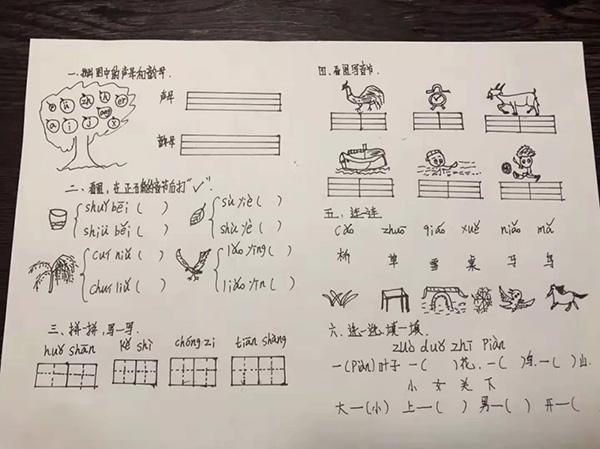 一、找出图中的声母和韵母.
声母
韵母
a i j x
二、看图,在正确的音节后打"√".
shuǐ bēi ( )
shiǔ bēi ( )
sù yiè ( )
shù yè ( )
cuī niǔ ( )
chuí liǔ ( )
lǎo yīng ( )
liǎo yīn ( )
三、拼一拼,写一写.
huǒ shān kě shì chóng zi tiān shàng
四、看图写音节.
五、连一连
cǎo zhuō qiáo xuě niǎo mǎ
桥 草 雪 桌 马 鸟
六、选一选,填一填.
zuò duǒ zhī piàn
一(piàn)叶子 一( )花, 一( )鸟, 一( )山
小 女 关 下
大—(小) 上—( ) 男—( ) 开—(